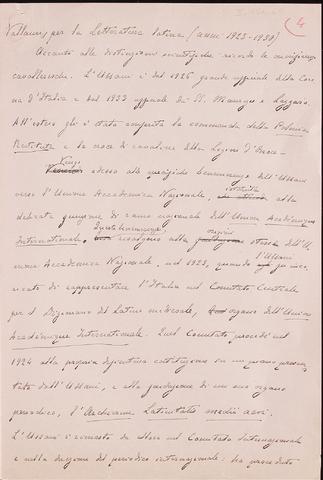 4
Vallauri, per la Letteratura latina (anni 1923-1930)
Accanto alle distinzioni scientifiche ricordo le onorificenze
cavalleresche. L'Ussani è dal 1926 grande ufficiale della Coro
na d'Italia e dal 1933 ufficiale dei SS. Maurizio e Lazzaro.
All'estero gli è stata conferita la commenda della Polonia
Restituta e la croce di cavaliere della Legion d'Onore.
Vengo adesso alle specifiche benemerenze dell'Ussani
verso l'Unione Accademica Nazionale, alla
delicata funzione di ramo nazionale dell'Union Académique
Internationale. Queste benemerenze
risalgono alla origine stessa dell'U
nione Accademica Nazionale, nel 1923, quando l'Ussani fu inca
ricato di rappresentare l'Italia nel Comitato Centrale
per il Dizionario del Latino medievale, organo dell'Union
Académique Internationale. Quel Comitato procedé nel
1924 alla propria definitiva costituzione su un piano presen
tato dall'Ussani, e alla fondazione di un suo organo
periodico, l'Archivum Latinitatis medii aevi.
L'Ussani è rimasto da allora nel Comitato Internazionale
e nella direzione del periodico internazionale: ha preceduto